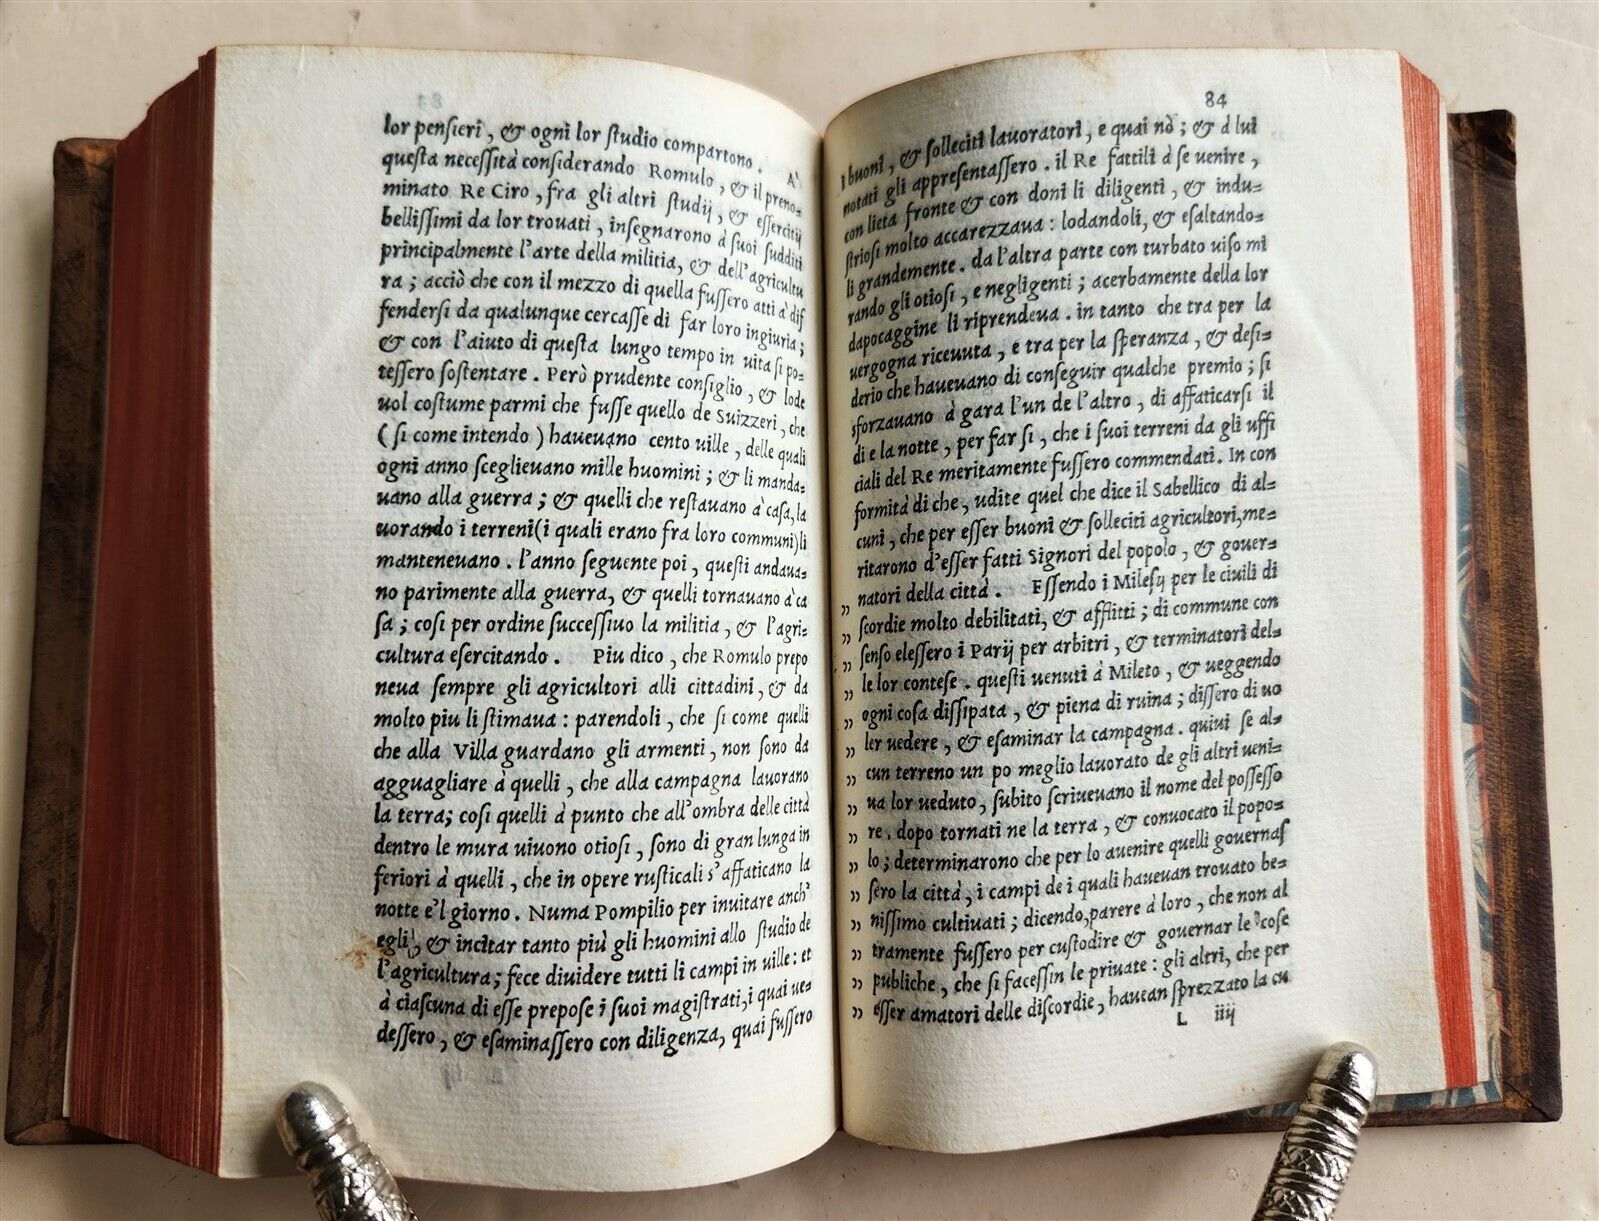 lor pensieri, & ogni lor studio compartono. A'
questa necessità considerando Romulo, & il preno-
minato Re Ciro, fra gli altri studij, & essercitij
bellissimi da lor trovati, insegnarono à suoi sudditi
principalmente l'arte della militia, & dell'agricultu
ra; acciò che con il mezzo di quella fussero atti à dif
fendersi da qualunque cercasse di far loro ingiuria;
& con l'aiuto di questa lungo tempo in uita si po-
tessero sostentare. Però prudente consiglio, & lode
uol costume parmi che fusse quello de Suizzeri, che
(si come intendo) haueuano cento uille, delle quali
ogni anno sceglieuano mille huomini; & li manda-
uano alla guerra; & quelli che restauano à casa, la
uorando i terreni (i quali erano fra loro communi) li
manteneuano. l'anno seguente poi, questi andaua-
no parimente alla guerra, & quelli tornauano à ca
sa; cosi per ordine successiuo la militia, & l'agri-
cultura esercitando. Piu dico, che Romulo prepo
neua sempre gli agricultori alli cittadini, & da
molto piu li stimaua: parendoli, che si come quelli
che alla Villa guardano gli armenti, non sono da
agguagliare à quelli, che alla campagna lauorano
la terra; cosi quelli à punto che all'ombra delle città
dentro le mura uiuono otiosi, sono di gran lunga in
feriori à quelli, che in opere rusticali s'affaticano la
notte e'l giorno. Numa Pompilio per inuitare anch'
egli, & incitar tanto più gli huomini allo studio de
l'agricultura; fece diuidere tutti li campi in uille: et
à ciascuna di esse prepose i suoi magistrati, i quai ue-
dessero, & esaminassero con diligenza, quai fussero
84
i buoni, & solleciti lauoratori, e quai nò; & à lui
notati gli appresentassero. il Re fattili à se uenire,
con lieta fronte & con doni li diligenti, & indu-
striosi molto accarezzaua: lodandoli, & esaltando-
li grandemente. da l'altra parte con turbato uiso mi
rando gli otiosi, e negligenti; acerbamente della lor
dapocaggine li riprendeua. in tanto che tra per la
uergogna riceuuta, e tra per la speranza, & desi-
derio che haueuano di conseguir qualche premio; si
sforzauano à gara l'un de l'altro, di affaticarsi il
di e la notte, per far si, che i suoi terreni da gli uffi
ciali del Re meritamente fussero commendati. In con
formità di che, udite quel che dice il Sabellico di al-
cuni, che per esser buoni & solleciti agricultori, me-
ritarono d'esser fatti Signori del popolo, & gouer-
natori della città. Essendo i Milesij per le ciuili di
” scordie molto debilitati, & afflitti; di commune con
” senso elessero i Parij per arbitri, & terminatori del-
” le lor contese. questi uenuti à Mileto, & ueggendo
” ogni cosa dissipata, & piena di ruina; dissero di uo
” ler uedere, & esaminar la campagna. quiui se al-
” cun terreno un po meglio lauorato de gli altri ueni-
” ua lor ueduto, subito scriueuano il nome del possesso
” re. dopo tornati ne la terra, & conuocato il popo-
” lo; determinarono che per lo auenire quelli gouernas
” sero la città, i campi de i quali haueuan trouato be-
” nissimo cultiuati; dicendo, parere à loro, che non al
” tramente fussero per custodire & gouernar le cose
” publiche, che si facessin le priuate: gli altri, che per
” esser amatori delle discordie, hauean sprezzato la cu
L iiij